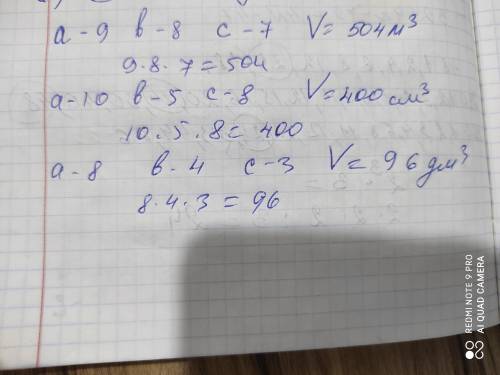 a - 9 в - 8 с - 7 V = 504 м³
9 · 8 · 7 = 504
a - 10 в - 5 с - 8 V = 400 см³
10 · 5 · 8 = 400
a - 8 в - 4 с - 3 V = 96 дм³
8 · 4 · 3 = 96
REDMI NOTE 9 PRO
AI QUAD CAMERA